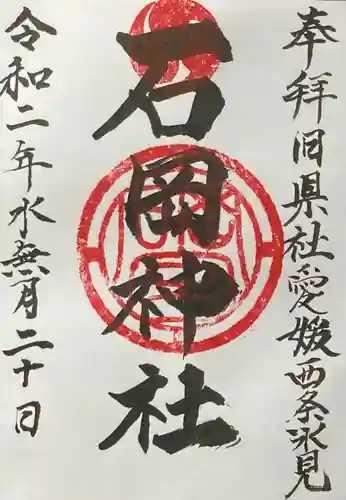 奉拝 旧県社 愛媛西条氷見
石岡神社
令和二年水無月二十日